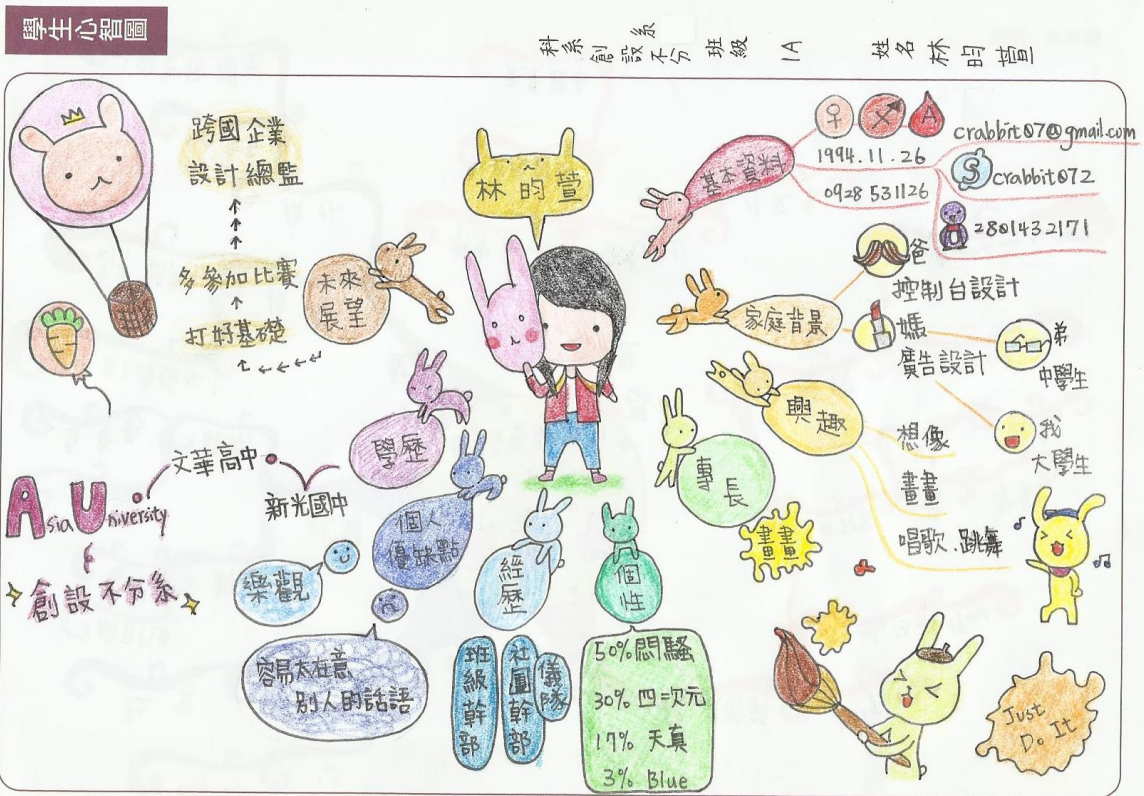 學生心智圖
科系 創設系不分
班級 1A
姓名 林昀萱
林昀萱
基本資料
A
1994.11.26
0928 531126
crabbit07@gmail.com
S
crabbit072
2801432171
家庭背景
爸
控制台設計
媽
廣告設計
弟
中學生
我
大學生
興趣
想像
畫畫
唱歌.跳舞
專長
畫畫
個性
50% 悶騷
30% 四次元
17% 天真
3% Blue
經歷
班級幹部
社團幹部
儀隊
個人
優缺點
樂觀
容易太在意
別人的話語
學歷
新光國中
文華高中
Asia University
創設不分系
未來
展望
打好基礎
多參加比賽
跨國企業
設計總監
Just
Do It